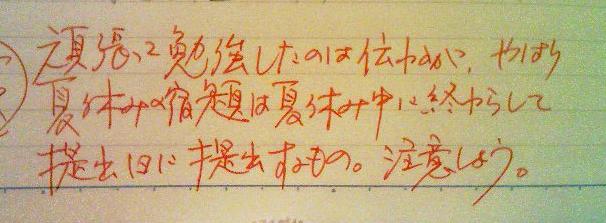 頑張って勉強したのは伝わるが、やはり
夏休みの宿題は夏休み中に終わらして
提出日に提出するもの。注意しよう。